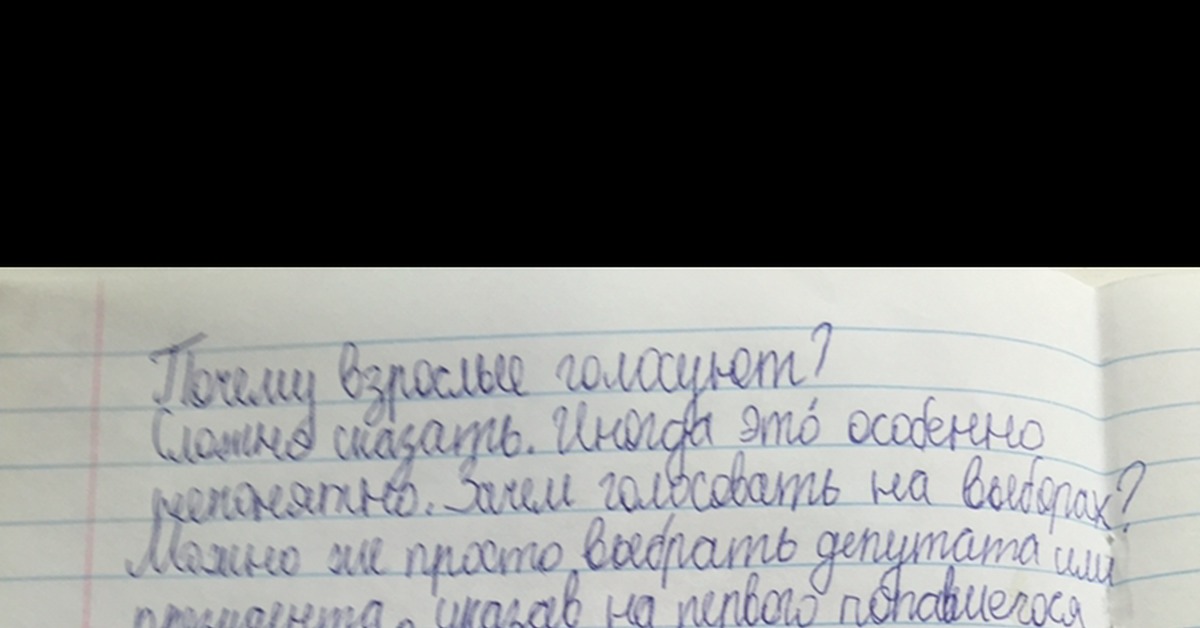 Почему взрослые голосуют?
Сложно сказать. Иногда это особенно
непонятно. Зачем голосовать на выборах?
Можно же просто выбрать депутата или
президента, указав на первого попавшегося